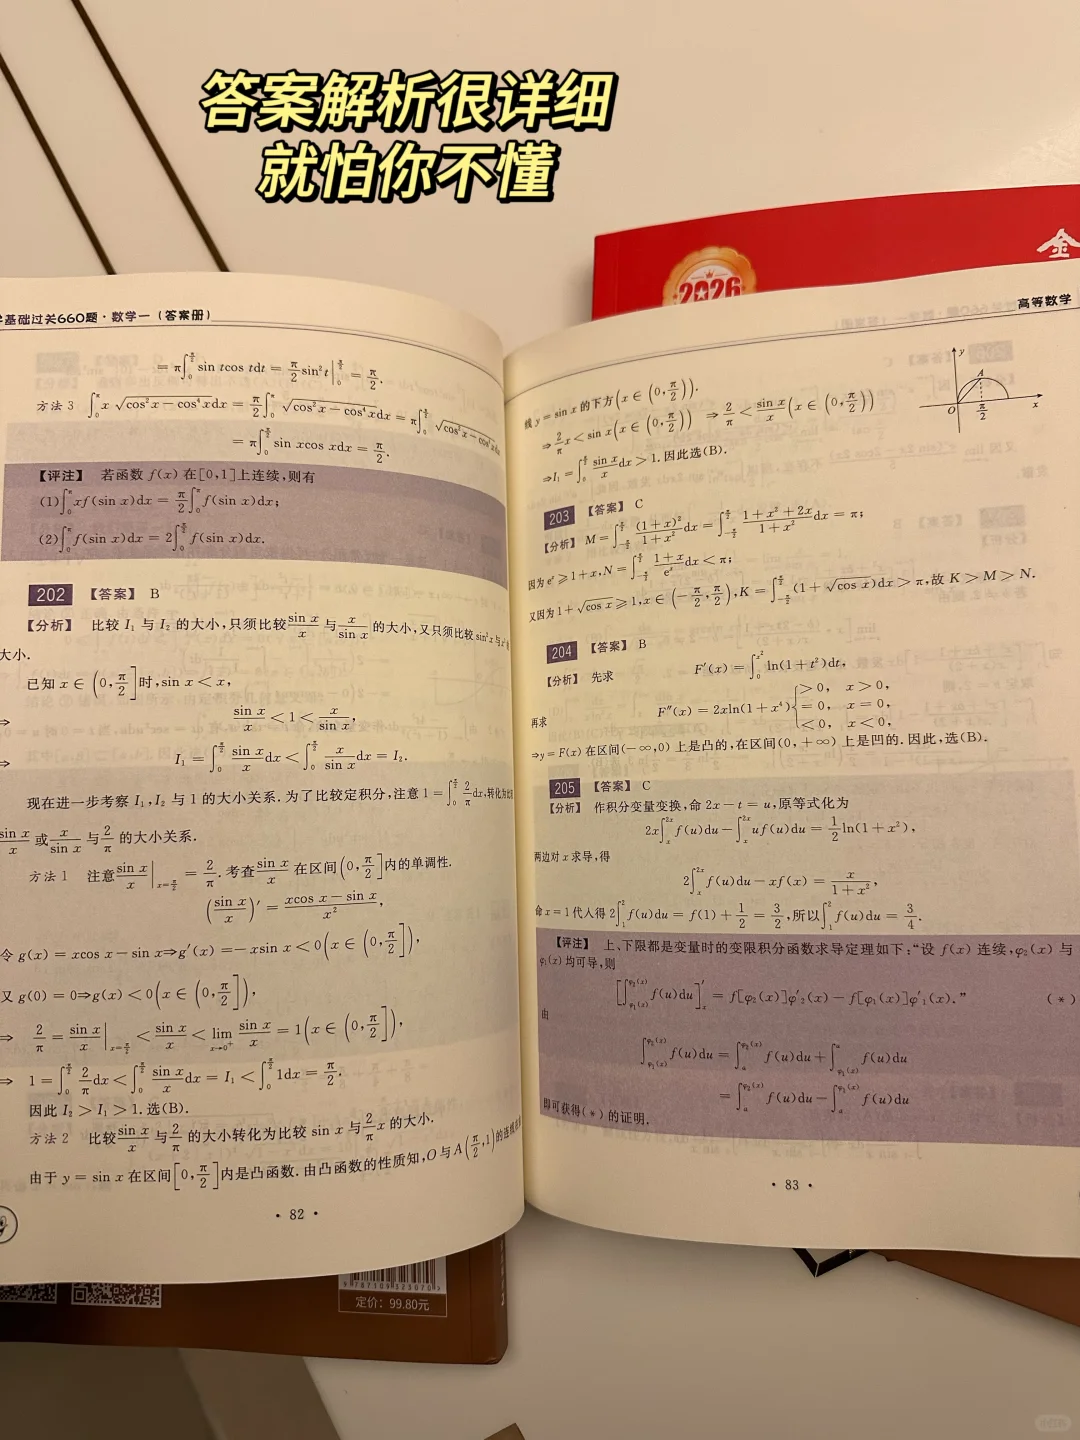 答案解析很详细
就怕你不懂
2026
金
基础过关660题·数学一（答案册）
= π∫₀^{π/2} sin tcos tdt = π/2 sin²t |₀^{π/2} = π/2.
方法 3 ∫₀^π x √(cos²x − cos⁴x)dx = π/2 ∫₀^π √(cos²x − cos⁴x)dx = π∫₀^{π/2} √(cos²x − cos⁴x)dx
= π∫₀^{π/2} sin xcos xdx = π/2.
【评注】 若函数 f(x) 在[0,1]上连续,则有
(1)∫₀^π xf(sin x)dx = π/2 ∫₀^π f(sin x)dx;
(2)∫₀^π f(sin x)dx = 2∫₀^{π/2} f(sin x)dx.
202 【答案】 B
【分析】 比较 I₁ 与 I₂ 的大小,只须比较 sin x/x 与 x/sin x 的大小,又只须比较 sin²x 与 x² 的
大小.
已知 x ∈ (0, π/2] 时, sin x < x,
⇒ sin x/x < 1 < x/sin x,
⇒ I₁ = ∫₀^{π/2} sin x/x dx < ∫₀^{π/2} x/sin x dx = I₂.
现在进一步考察 I₁, I₂ 与 1 的大小关系. 为了比较定积分, 注意 1 = ∫₀^{π/2} 2/π dx, 转化为比较
sin x/x 或 x/sin x 与 2/π 的大小关系.
方法 1 注意 sin x/x |_{x=π/2} = 2/π. 考查 sin x/x 在区间 (0, π/2] 内的单调性.
(sin x/x)′ = (xcos x − sin x)/x²,
令 g(x) = xcos x − sin x ⇒ g′(x) = − xsin x < 0 (x ∈ (0, π/2]),
又 g(0) = 0 ⇒ g(x) < 0 (x ∈ (0, π/2]),
⇒ 2/π = sin x/x |_{x=π/2} < sin x/x < lim_{x→0⁺} sin x/x = 1 (x ∈ (0, π/2]),
⇒ 1 = ∫₀^{π/2} 2/π dx < ∫₀^{π/2} sin x/x dx = I₁ < ∫₀^{π/2} 1dx = π/2.
因此 I₂ > I₁ > 1. 选(B).
方法 2 比较 sin x/x 与 2/π 的大小转化为比较 sin x 与 2/π x 的大小.
由于 y = sin x 在区间 [0, π/2] 内是凸函数. 由凸函数的性质知, O 与 A(π/2, 1) 的连线
· 82 ·
定价：99.80元
高等数学
y
A
O
π/2
x
线 y = sin x 的下方 (x ∈ (0, π/2)).
⇒ 2/π x < sin x (x ∈ (0, π/2)) ⇒ 2/π < sin x/x (x ∈ (0, π/2))
⇒ I₁ = ∫₀^{π/2} sin x/x dx > 1. 因此选(B).
203 【答案】 C
【分析】 M = ∫_{−π/2}^{π/2} (1+x)²/(1+x²) dx = ∫_{−π/2}^{π/2} (1+x²+2x)/(1+x²) dx = π;
因为 eˣ ⩾ 1+x, N = ∫_{−π/2}^{π/2} (1+x)/eˣ dx < π;
又因为 1+√cos x ⩾ 1, x ∈ (−π/2, π/2), K = ∫_{−π/2}^{π/2} (1+√cos x)dx > π, 故 K > M > N.
204 【答案】 B
【分析】 先求 F′(x) = ∫₀^{x²} ln(1+t²)dt,
再求 F″(x) = 2xln(1+x⁴) { > 0, x > 0, = 0, x = 0, < 0, x < 0,
⇒ y = F(x) 在区间(−∞,0) 上是凸的, 在区间(0, +∞) 上是凹的. 因此, 选(B).
205 【答案】 C
【分析】 作积分变量变换, 命 2x − t = u, 原等式化为
2x∫ₓ^{2x} f(u)du − ∫ₓ^{2x} uf(u)du = 1/2 ln(1+x²),
两边对 x 求导, 得
2∫ₓ^{2x} f(u)du − xf(x) = x/(1+x²),
命 x = 1 代入得 2∫₁² f(u)du = f(1) + 1/2 = 3/2, 所以∫₁² f(u)du = 3/4.
【评注】 上、下限都是变量时的变限积分函数求导定理如下:“设 f(x) 连续, φ₂(x) 与
φ₁(x) 均可导, 则
[∫_{φ₁(x)}^{φ₂(x)} f(u)du]′ₓ = f[φ₂(x)]φ′₂(x) − f[φ₁(x)]φ′₁(x).” (*)
由
∫_{φ₁(x)}^{φ₂(x)} f(u)du = ∫ₐ^{φ₂(x)} f(u)du + ∫_{φ₁(x)}^a f(u)du
= ∫ₐ^{φ₂(x)} f(u)du − ∫ₐ^{φ₁(x)} f(u)du
即可获得(*)的证明.
· 83 ·